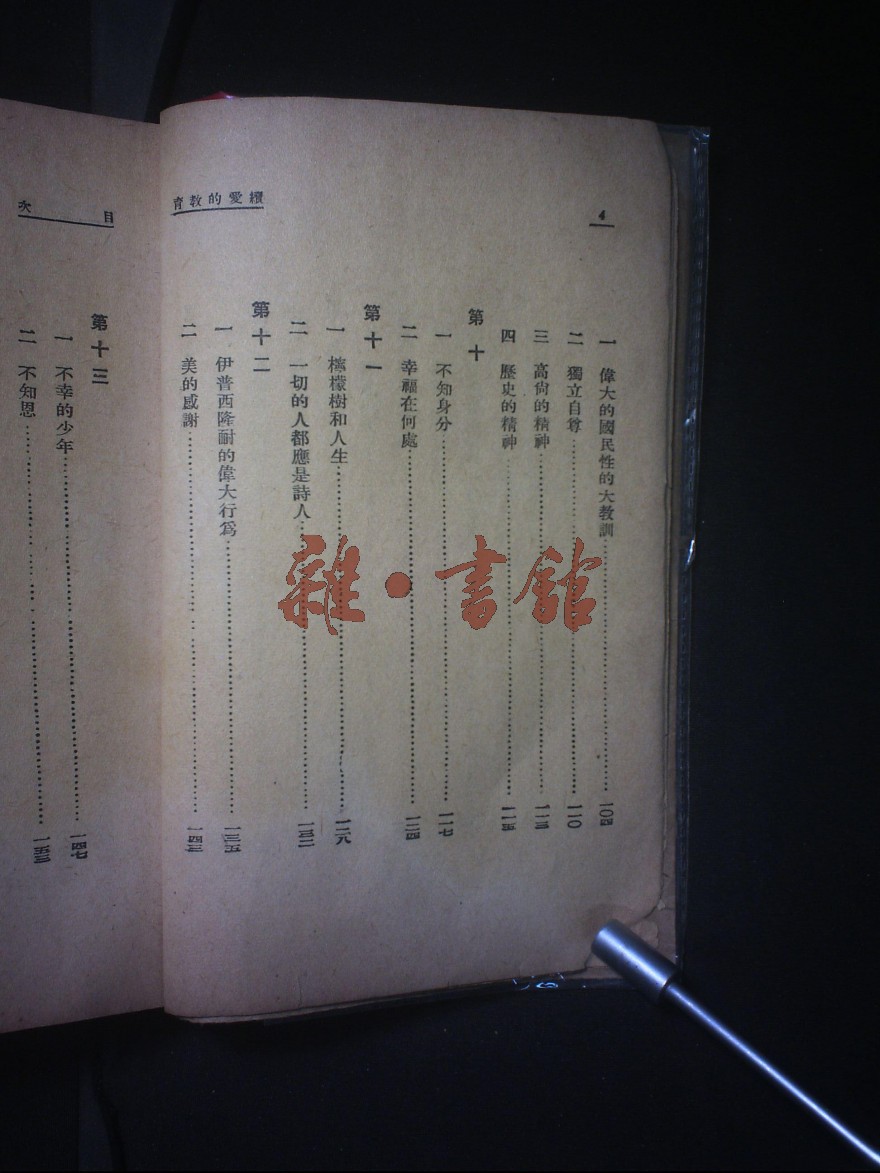 4
續愛的教育
一 偉大的國民性的大教訓……一〇四
二 獨立自尊……一一〇
三 高尙的精神……一一三
四 歷史的精神……一一五
第十
一 不知身分……一一七
二 幸福在何處……一二四
第十一
一 檸檬樹和人生……一二八
二 一切的人都應是詩人……一三二
第十二
一 伊普西隆耐的偉大行爲……一三五
二 美的感謝……一四三
目次
第十三
一 不幸的少年……一四七
二 不知恩……一五三
雜·書館